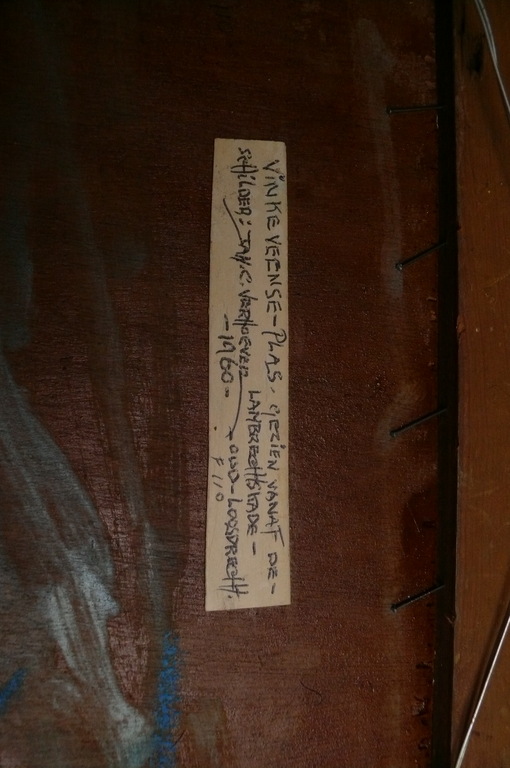 VINKEVEENSE-PLAS. GEZIEN VANAF DE-
LAMBRECHTSKADE-
SCHILDER: JAN.C. VERHOEVEN OUD-LOOSDRECHT.
-1960-
F 110